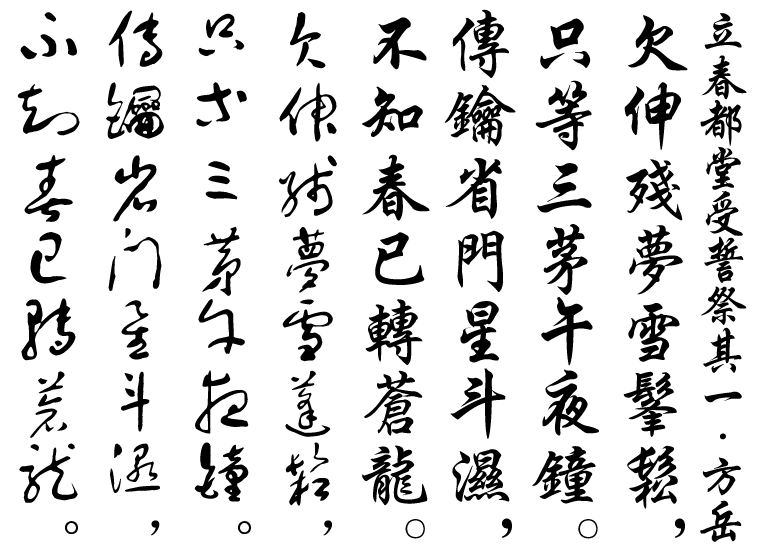 立春都堂受誓祭其一·方岳
欠伸殘夢雪髼鬆,
只等三茅午夜鐘。
傳鑰省門星斗濕,
不知春已轉蒼龍。
欠伸殘夢雪蓬鬆,
只等三茅午夜鐘。
傳鑰省門星斗濕,
不知春已轉蒼龍。